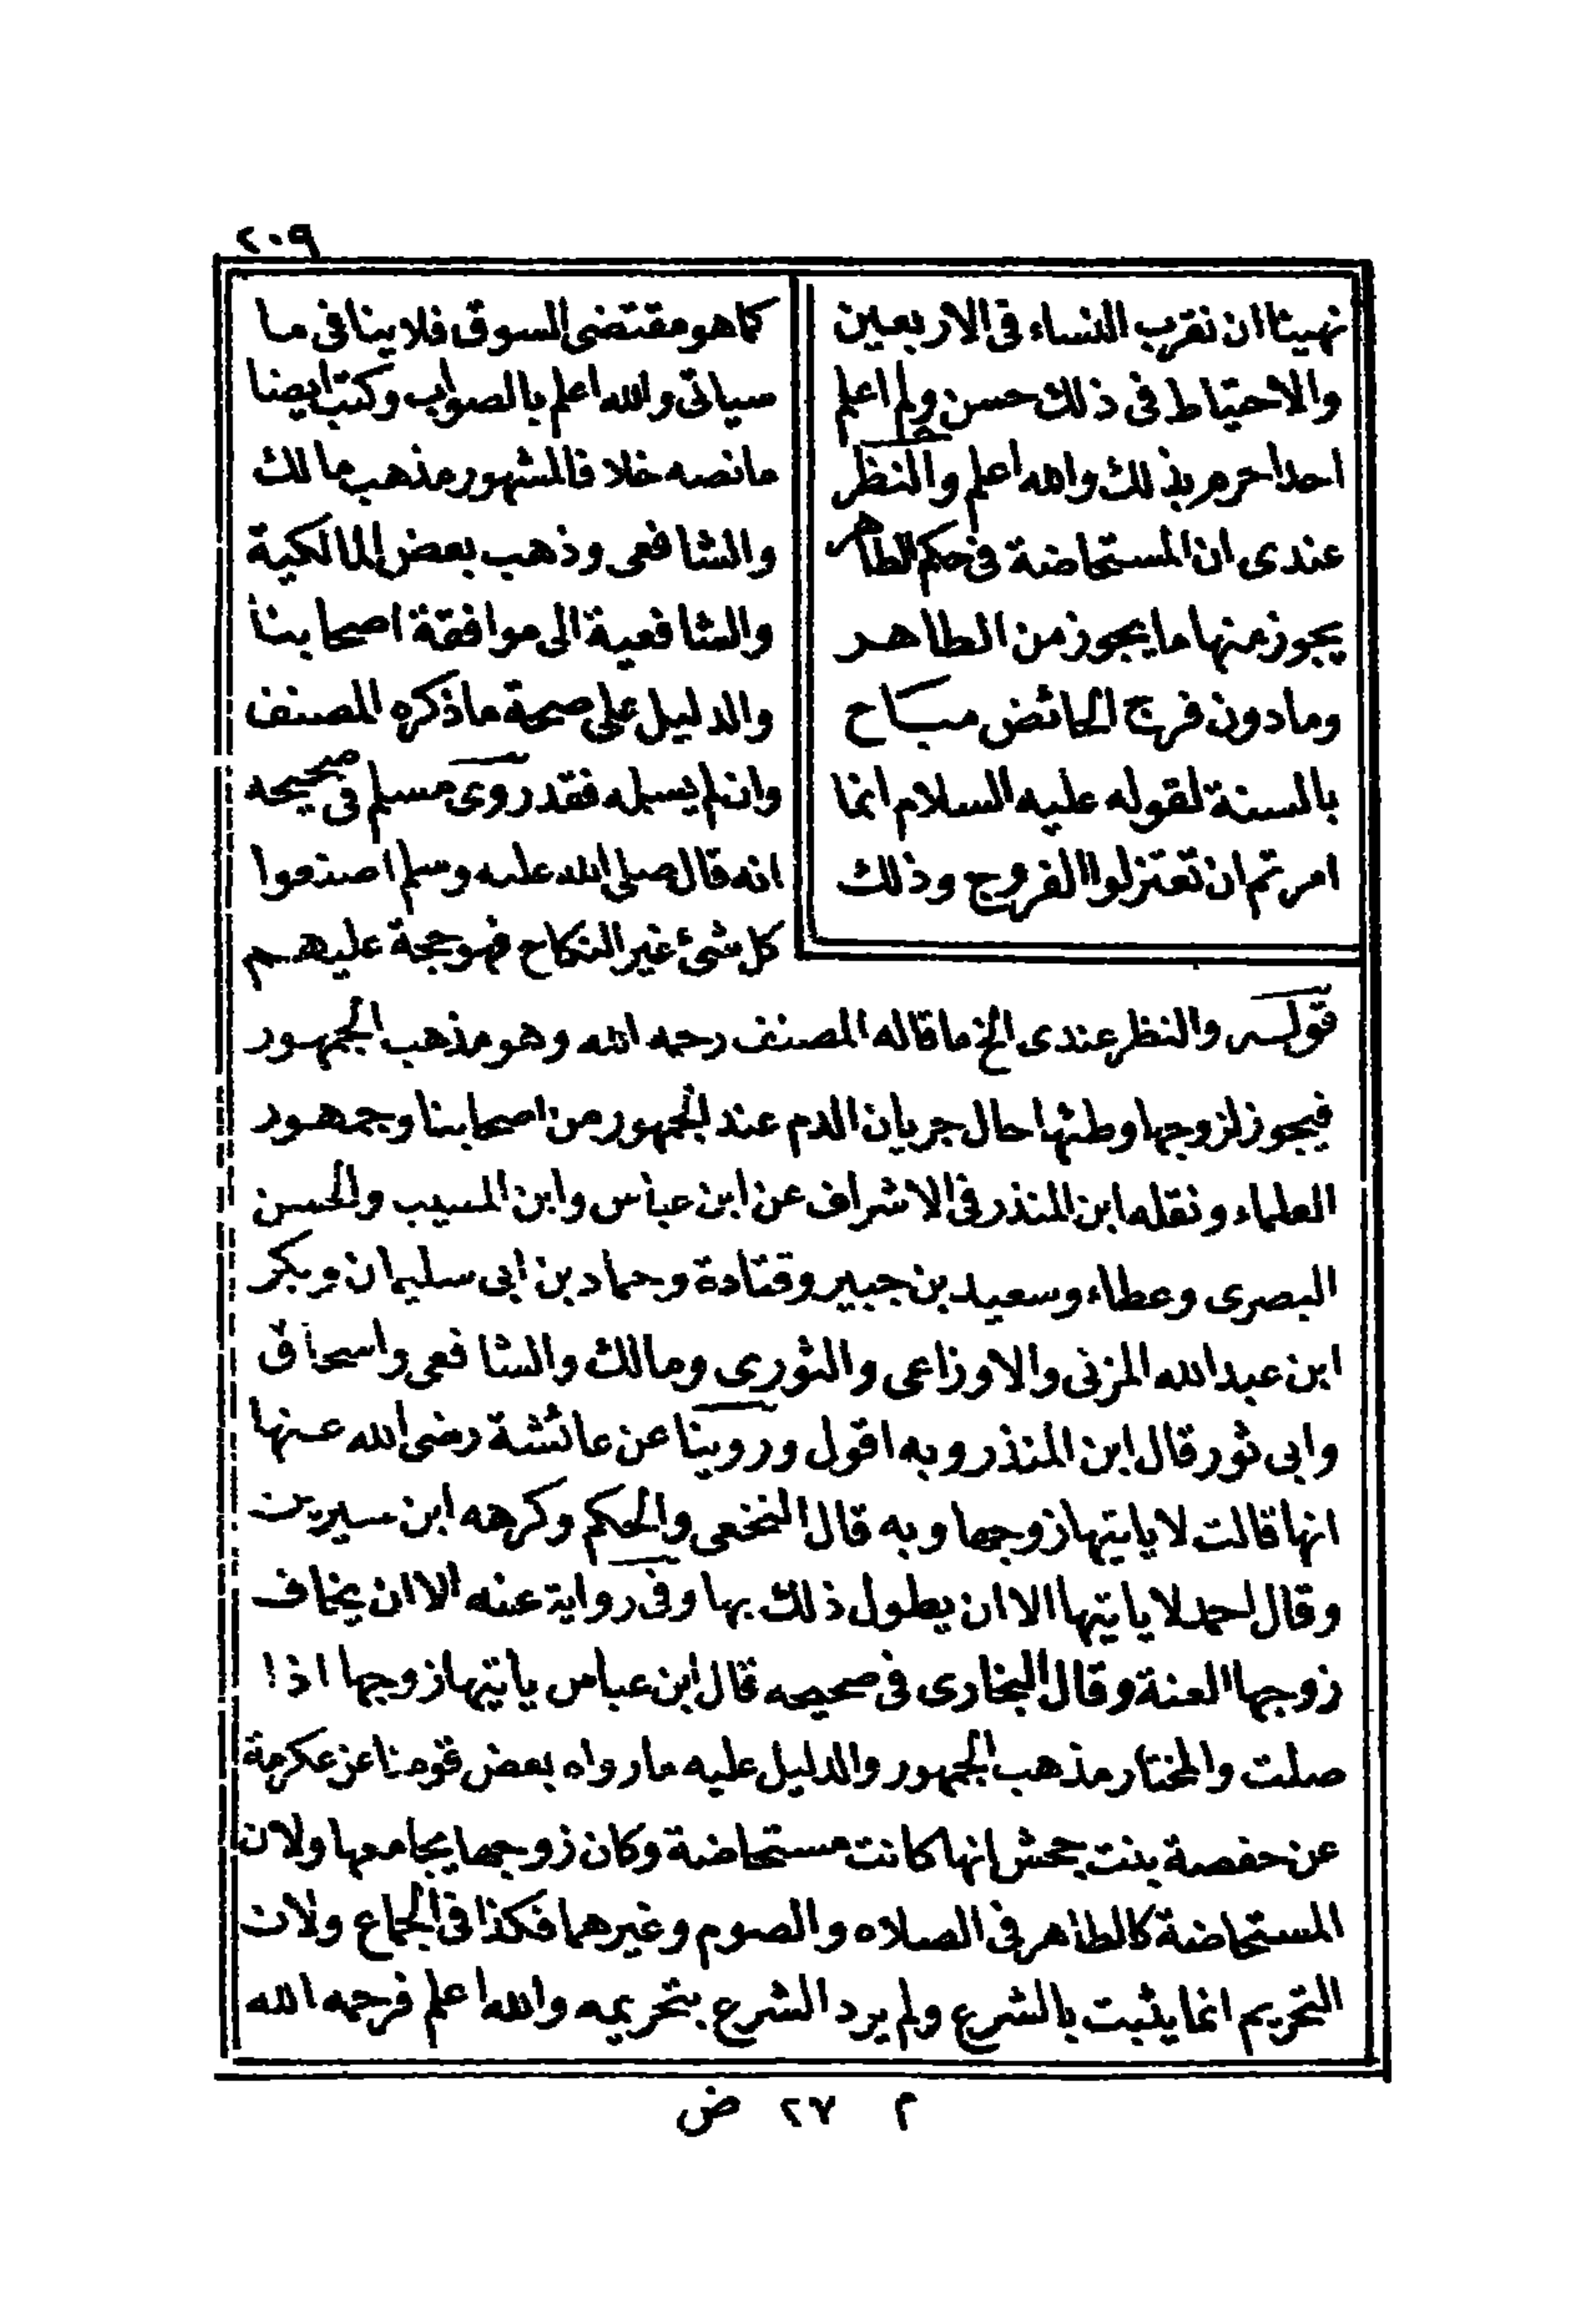 ٢٠٩
نهينا ان نقرب النساء فى الاربعين
والاحتياط فى ذلك حسن ولم اعلم
احدا حرم بذلك والله اعلم والنظر
عندى ان المستحاضة فى حكم الطاهر
يجوز منها ما يجوز من الطاهر
وما دون فرج الحائض مباح
بالسنة لقوله عليه السلام انما
امرتم ان تعتزلوا الفروج وذلك
كما هو مقتضى السوق فلا ينافى ما
سياتى والله اعلم بالصواب وكتب ايضا
ما نصه خلافا لمشهور مذهب مالك
والشافعى وذهب بعض المالكية
والشافعية الى موافقة اصحابنا
والدليل على صحة ما ذكره المصنف
وان لم يسبله فقد روى مسلم فى صحيحه
انه قال صلى الله عليه وسلم اصنعوا
كل شئ غير النكاح فهو حجة عليهم
قوله والنظر عندى الخ ما قاله المصنف رحمه الله وهو مذهب الجمهور
فيجوز لزوجها وطئها حال جريان الدم عند الجمهور من اصحابنا وجمهور
العلماء ونقله ابن المنذر فى الاشراف عن ابن عباس وابن المسيب والحسن
البصرى وعطاء وسعيد بن جبير وقتادة وحماد بن ابى سليمان وبكر
ابن عبدالله المزنى والاوزاعى والثورى ومالك والشافعى واسحاق
وابى ثور قال ابن المنذر وبه اقول وروينا عن عائشة رضى الله عنها
انها قالت لا ياتيها زوجها وبه قال النخعى والحكم وكرهه ابن سيرين
وقال احمد لا ياتيها الا ان يطول ذلك بها وفى رواية عنه الا ان يخاف
زوجها العنة وقال البخارى فى صحيحه قال ابن عباس ياتيها زوجها اذا
صلت والمختار مذهب الجمهور والدليل عليه ما رواه بعض قومنا عن عكرمة
عن حفصة بنت جحش انها كانت مستحاضة وكان زوجها يجامعها ولان
المستحاضة كالطاهر فى الصلاه والصوم وغيرهما فكذا فى الجماع ولان
التحريم انما يثبت بالشرع ولم يرد الشرع بتحريمه والله اعلم فرحمه الله
م ٢٧ ض